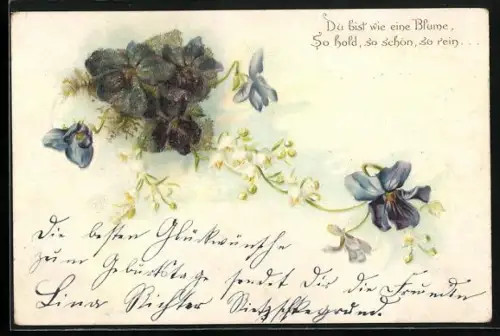 Du bist wie eine Blume,
So hold, so schön, so rein...
Die besten Glückwünsche
zum Geburtstage sendet Dir die Freundin
Lina Richter